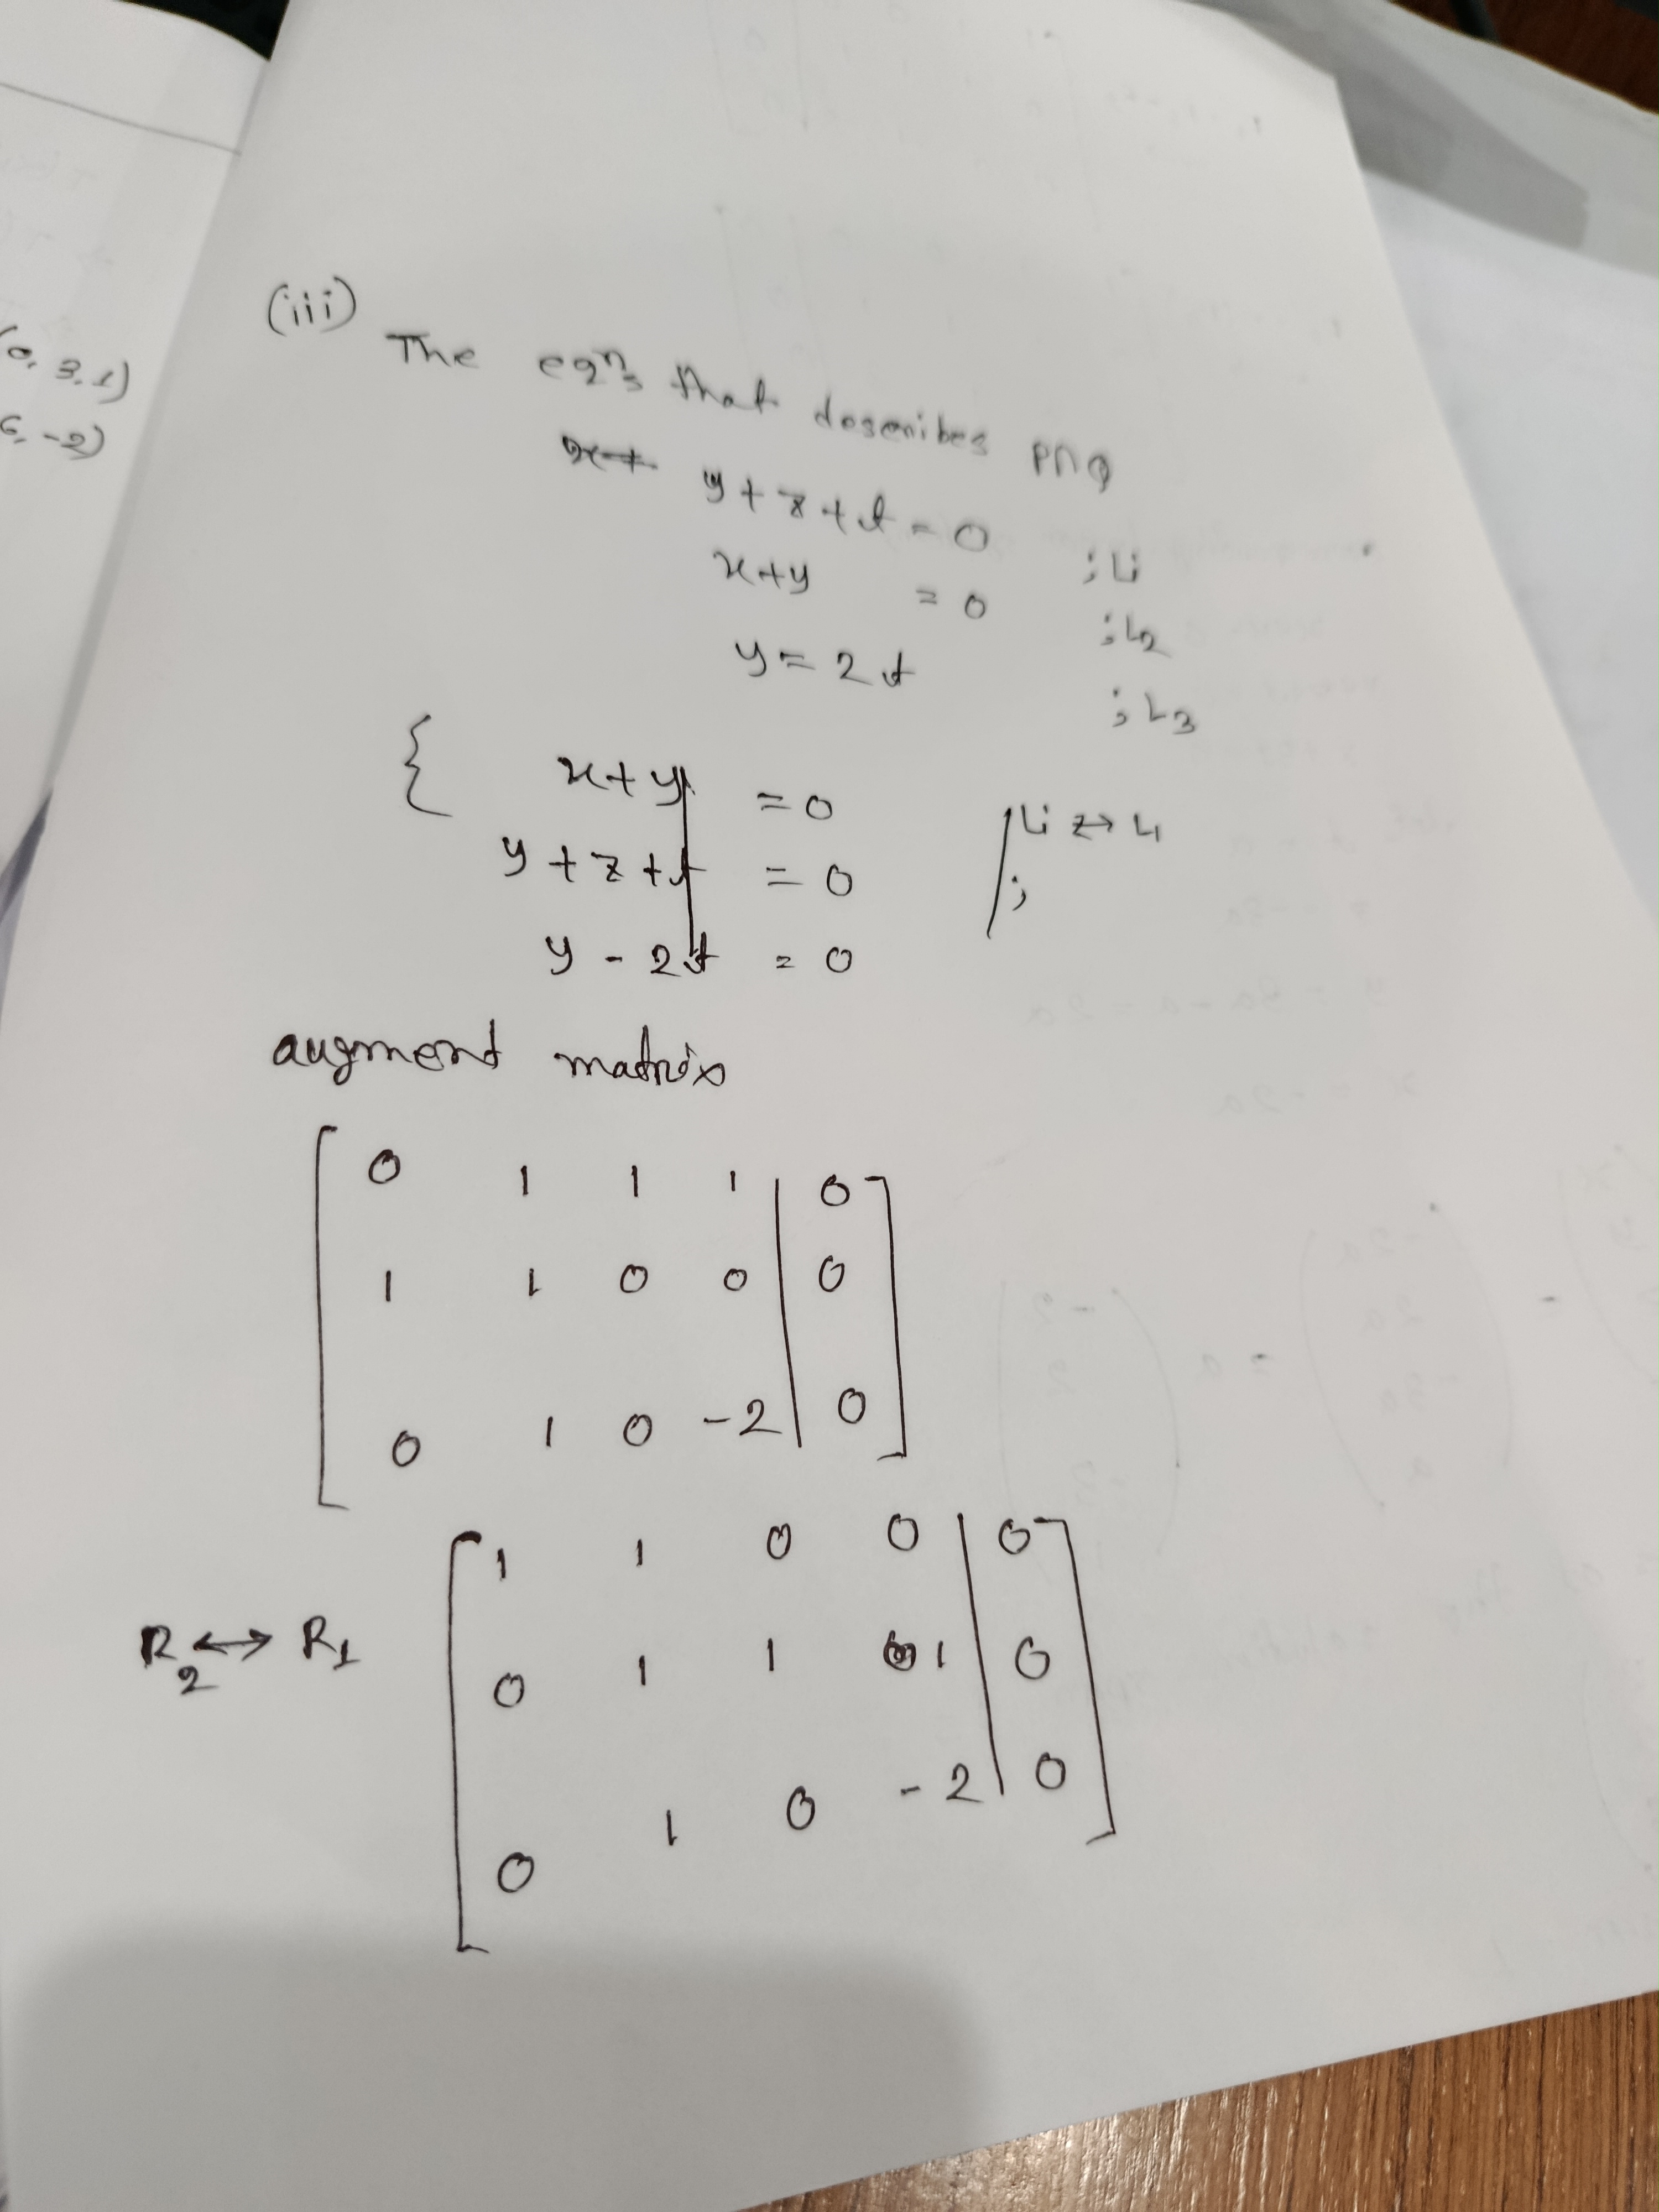 0, 3, 1)
6, -2)
(iii)
The eqns that describes P∩Q
y + z + t = 0 ; L1
x+y = 0 ; L2
y = 2t ; L3
{ x+y = 0
y + z + t = 0 ;
y - 2t = 0
augment matrix
[ 0 1 1 1 | 0 ]
1 1 0 0 | 0
0 1 0 -2 | 0
R2 ↔ R1
[ 1 1 0 0 | 0 ]
0 1 1 1 | 0
0 1 0 -2 | 0